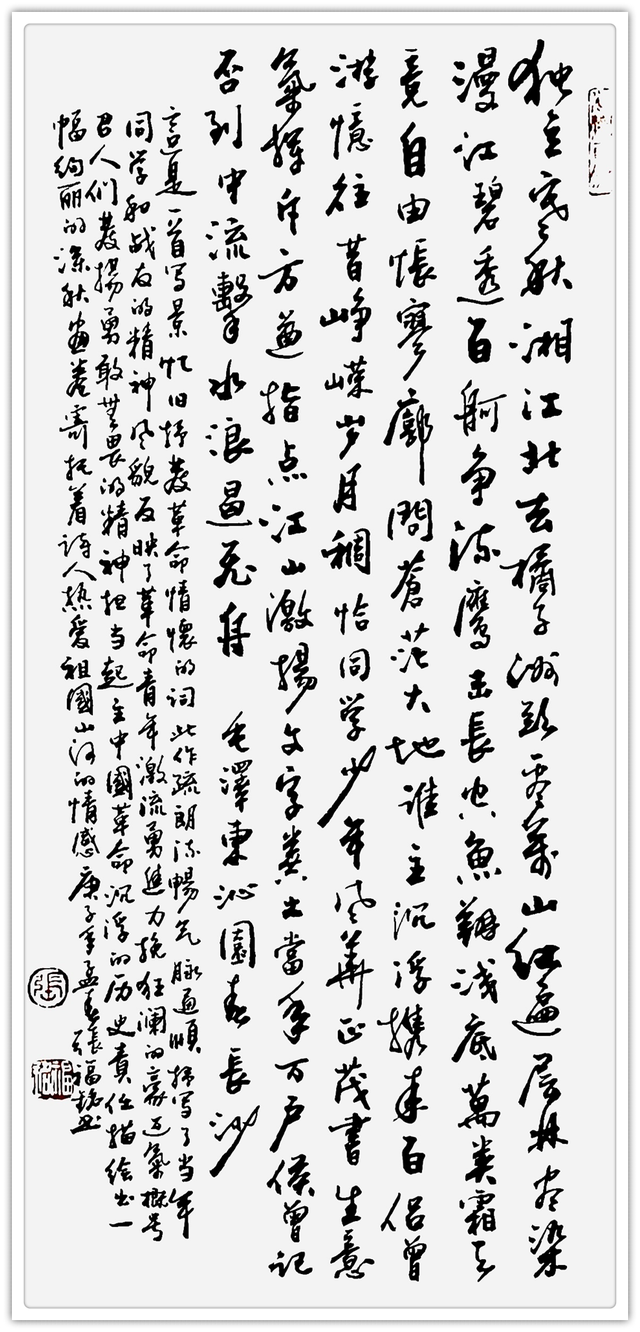 独立寒秋湘江北去橘子洲头看萬山红遍层林尽染
漫江碧透百舸争流鹰击長空魚翔浅底萬类霜天
竞自由悵寥廓問蒼茫大地谁主沉浮携来百侣曾
游憶往昔峥嵘岁月稠恰同学少年风華正茂書生意
氣挥斥方遒指点江山激揚文字粪土當年万户侯曾记
否到中流擊水浪遏飞舟 毛澤東沁園春長沙
这是一首写景忆旧抒發革命情懷的词此作疏朗流暢气脉通順描写了当年
同学和战友的精神风貌反映了革命青年激流勇進力挽狂澜的豪迈氣概号
召人们發揚勇敢無畏的精神担当起主中國革命沉浮的历史责任描绘出一
幅绚丽的深秋画卷寄托着诗人热爱祖國山河的情感 庚子年孟春張福书
張